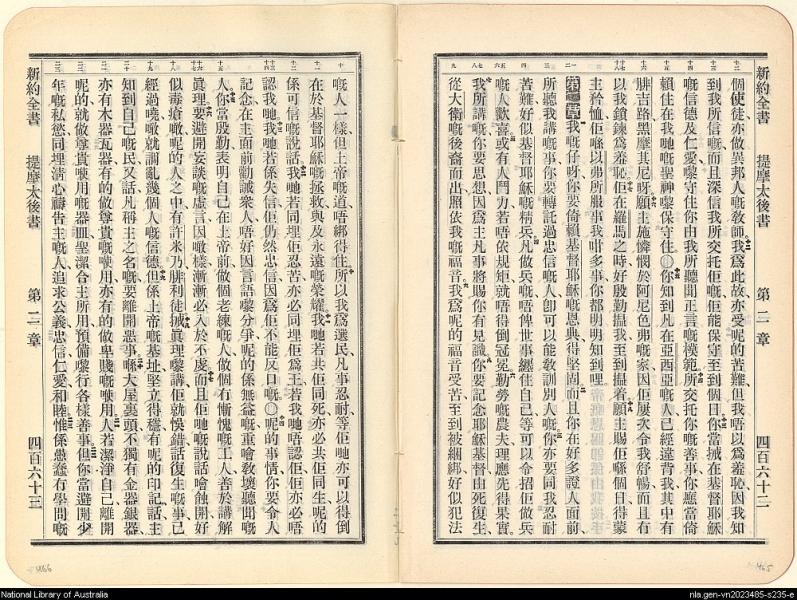 新約全書 提摩太後書 第二章 四百六十二
個使徒亦做異邦人嘅教師我爲此故亦受呢的苦難但我唔以爲羞恥因我知
到我所信嘅而且深信我所交托佢嘅佢能保守至到個日你當搣在基督耶穌
嘅信德及仁愛嚟守住你由我所聽聞正言嘅模範所交托你嘅善事你應當倚
賴住在我哋嘅聖神嚟保守住〇你知到凡在亞西亞嘅人已經違背我其中有
腓吉路黑摩其尼呀願主施憐憫於阿尼色弗嘅家因佢屢次令我舒暢而且有
以我鎖鍊爲羞恥佢在羅馬之時好殷勤搵我至到搵着願主賜佢喺個日得蒙
主矜恤佢喺以弗所服事我咁多事你都明明知到哩
第二章我嘅仔呀你要倚賴基督耶穌嘅恩典得堅固而且你在好多證人面前
所聽我講嘅事你要轉託過忠信嘅人卽可以能教訓別人嘅你亦要同我忍耐
苦難好似基督耶穌嘅精兵凡做兵嘅唔俾世事纏住自己等可以令招佢做兵
嘅人歡喜或有人鬥力若唔依規矩就唔得倒冠冕勤勞嘅農夫理應先得果實
我所講嘅你要思想因爲主凡事將賜你有見識你要記念耶穌基督由死復生
從大衛嘅後裔而出照依我嘅福音我爲呢的福音受苦至到被綑綁好似犯法
嘅人一樣但上帝嘅道唔綁得住所以我爲選民凡事忍耐等佢哋亦可以得倒
在於基督耶穌嘅拯救與及永遠嘅榮耀我哋若共佢同死亦必共佢同生呢的
係可信嘅說話我哋若同埋佢忍苦亦必同埋佢爲王若我哋唔認佢佢亦必唔
認我哋我哋若係失信佢仍然忠信因爲佢不能反口嘅〇呢的事情你要令人
記念在主面前勸誡衆人唔好因言語嚟分爭呢的係無益嘅重噲敎壞聽聞嘅
人你當殷勤表明自己在上帝前做個老練嘅人做個有慚愧嘅工人善於講解
眞理要避開妄談嘅虛言因噉樣漸漸必入於不虔而且佢哋嘅說話噲蝕開好
似毒瘡噉呢的人之中有許米乃腓利徒搣眞理嚟講佢就悞錯話復生嘅事已
經過嘵噉就謂亂幾個人嘅信德但係上帝嘅基址堅立得穩有呢的印記話主
知到自己嘅民又話凡稱主之名嘅要離開惡事喺大屋裏頭不獨有金器銀器
亦有木器瓦器有的做尊貴嘅使用亦有的做卑賤嘅使用人若潔淨自己離開
呢的就做尊貴使用嘅器皿聖潔合主所用預備嚟行各樣善事但你當避開少
年嘅私慾同埋清心禱告主嘅人追求公義忠信仁愛和睦惟係愚蠢有學問嘅
新約全書 提摩太後書 第二章 四百六十三
National Library of Australia
nla.gen-vn2023485-s235-e